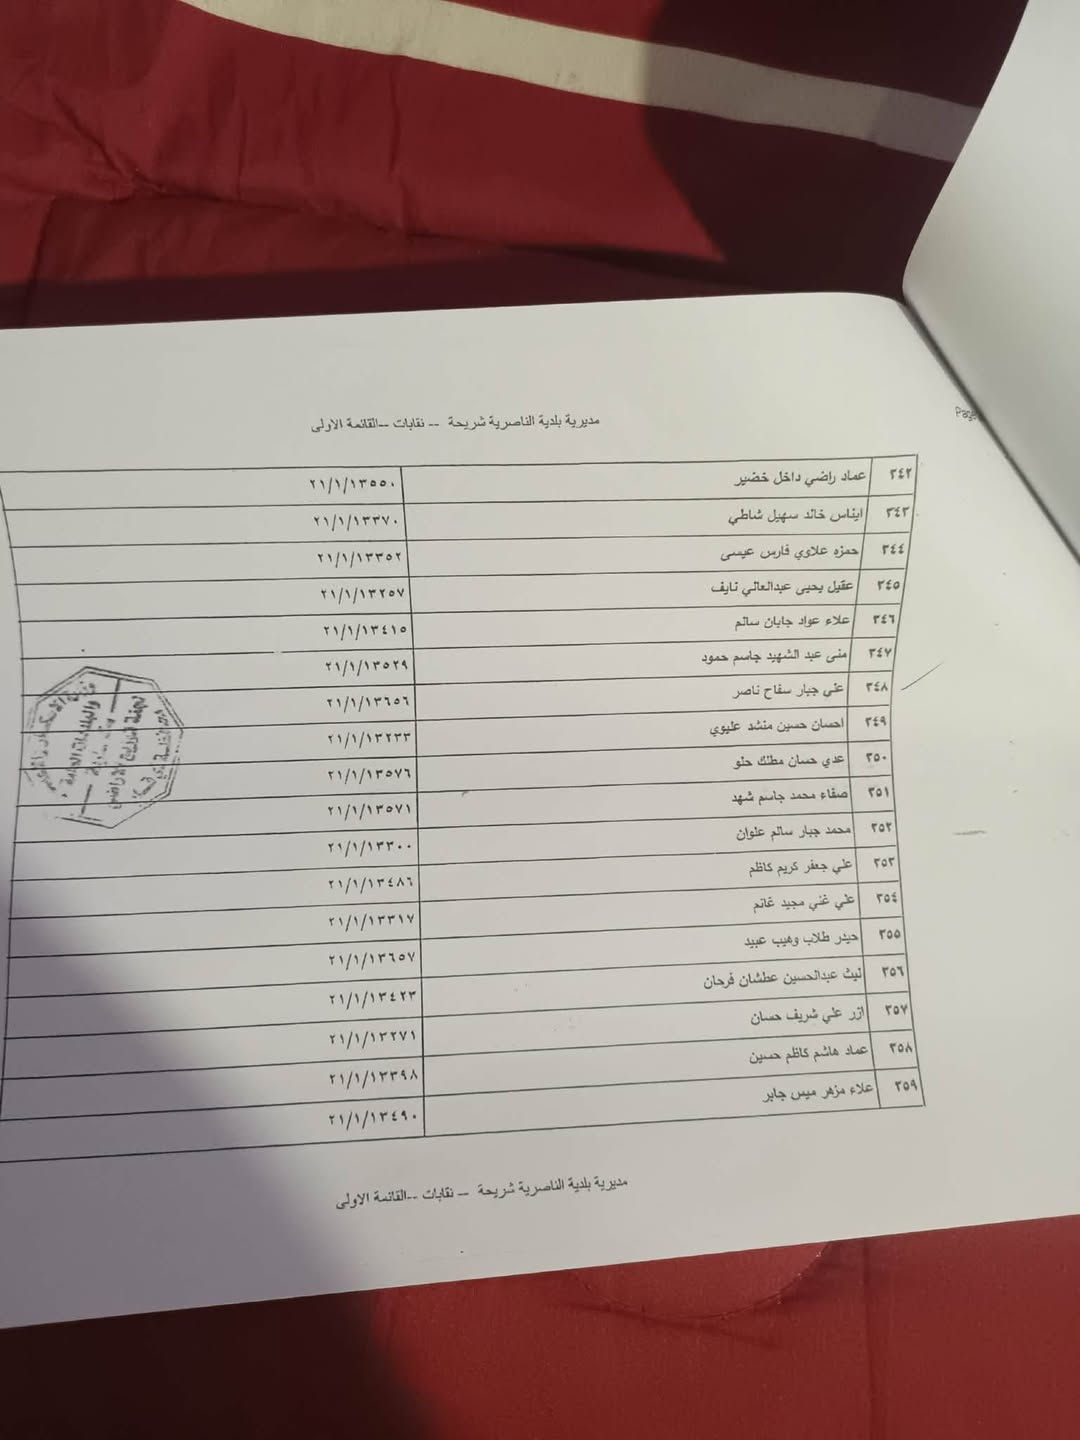 Page
مديرية بلدية الناصرية شريحة -- نقابات --القائمة الاولى
٣٤٢ عماد راضي داخل خضير ٢١/١/١٣٥٥٠
٣٤٣ ايناس خالد سهيل شاطي ٢١/١/١٣٣٧٠
٣٤٤ حمزه علاوي فارس عيسى ٢١/١/١٣٣٥٢
٣٤٥ عقيل يحيى عبدالعالي نايف ٢١/١/١٣٢٥٧
٣٤٦ علاء عواد جابان سالم ٢١/١/١٣٤١٥
٣٤٧ منى عبد الشهيد جاسم حمود ٢١/١/١٣٥٢٩
٣٤٨ علي جبار سفاح ناصر ٢١/١/١٣٦٥٦
٣٤٩ احسان حسين منشد عليوي ٢١/١/١٣٢٣٣
٣٥٠ عدي حسان مطلك حلو ٢١/١/١٣٥٧٦
٣٥١ صفاء محمد جاسم شهد ٢١/١/١٣٥٧١
٣٥٢ محمد جبار سالم علوان ٢١/١/١٣٣٠٠
٣٥٣ علي جعفر كريم كاظم ٢١/١/١٣٤٨٦
٣٥٤ علي غني مجيد غانم ٢١/١/١٣٣١٧
٣٥٥ حيدر طلاب وهيب عبيد ٢١/١/١٣٦٥٧
٣٥٦ ليث عبدالحسين عطشان فرحان ٢١/١/١٣٤٢٣
٣٥٧ ازر علي شريف حسان ٢١/١/١٣٢٧١
٣٥٨ عماد هاشم كاظم حسين ٢١/١/١٣٣٩٨
٣٥٩ علاء مزهر ميس جابر ٢١/١/١٣٤٩٠
والبلديات العامة
لجنة توزيع الاراضي
مديرية بلدية الناصرية شريحة -- نقابات --القائمة الاولى